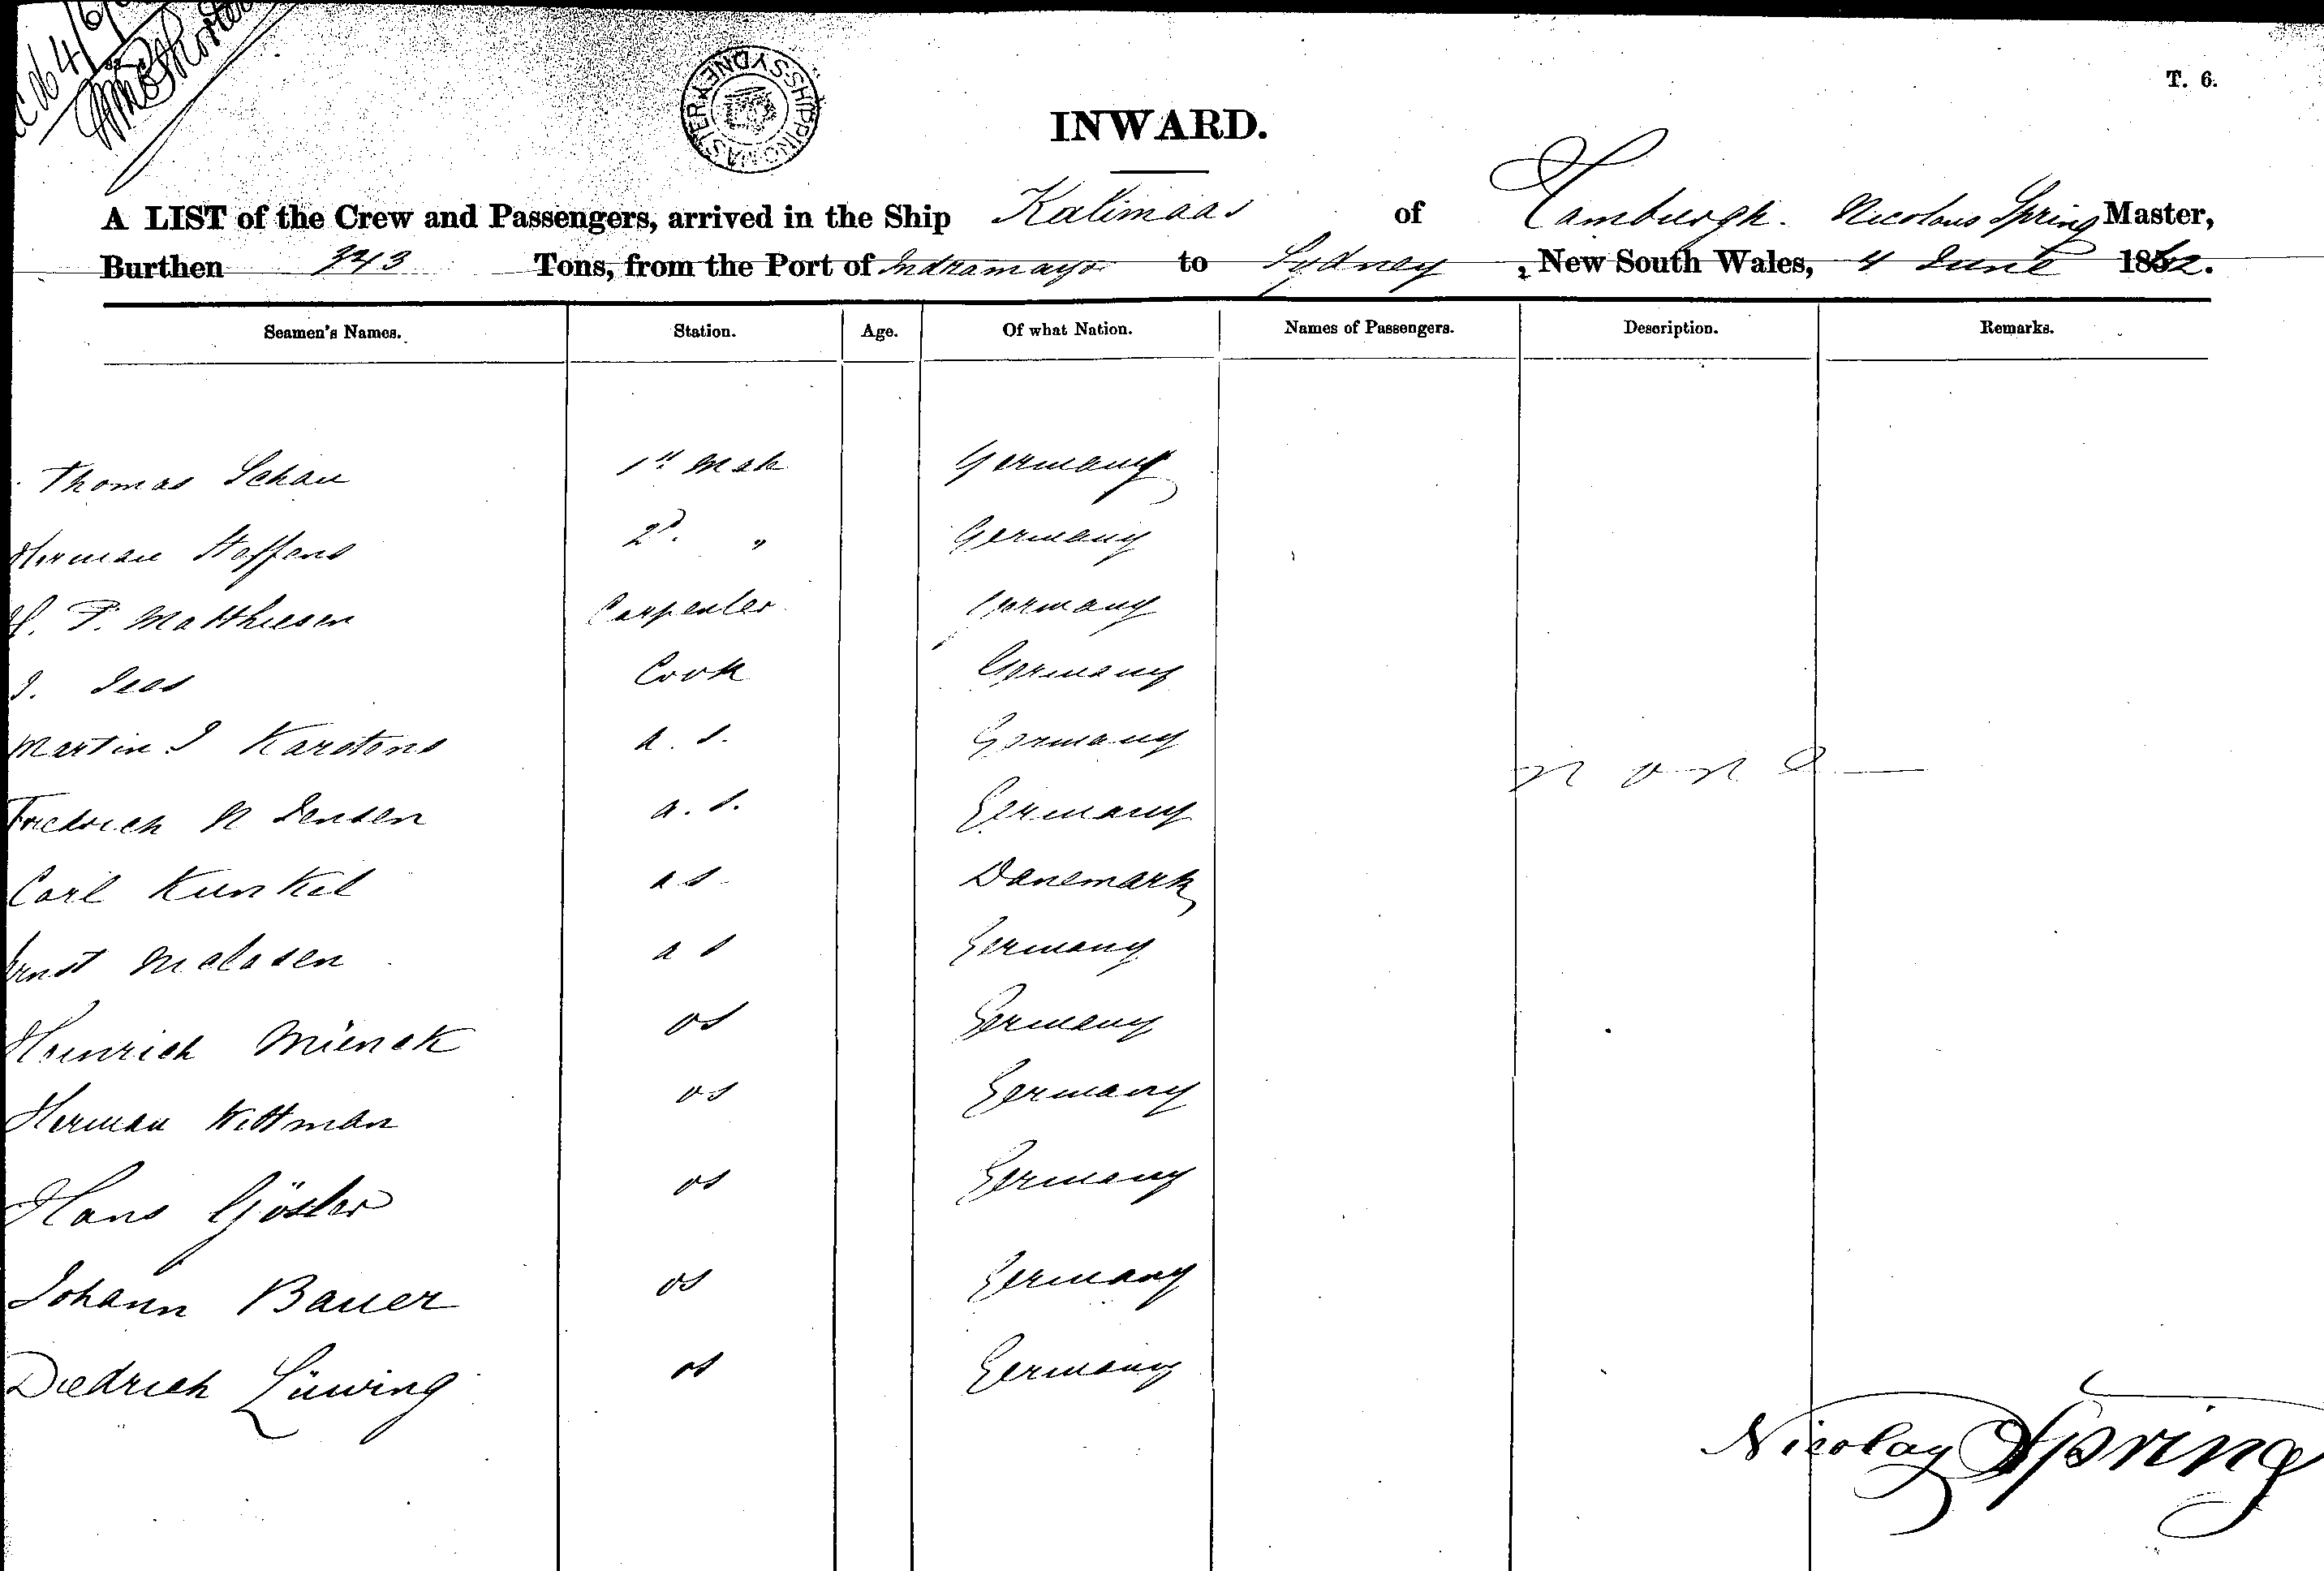 T. 6.
SHIPPING MASTER SYDNEY
INWARD.
A LIST of the Crew and Passengers, arrived in the Ship Kalimaas of Hamburgh. Nicolaus Spring Master,
Burthen 343 Tons, from the Port of Indramayo to Sydney, New South Wales, 4 June 1862.
Seamen's Names. Station. Age. Of what Nation. Names of Passengers. Description. Remarks.
Thomas Schau 1st Mate Germany
Herman Steffens 2d. " Germany
H. P. Matthiesen Carpenter Germany
J. Cook Germany
Martin J Karstens a. s. Germany
none
Friedrich N Jensen a. s. Germany
Carl Kunkel a s Danemark
Ernst a s Germany
Heinrich os Germany
Herman Wittman os Germany
Hans os Germany
Johann Bauer os Germany
Diedrich Lüwing os Germany
Nicolay Spring